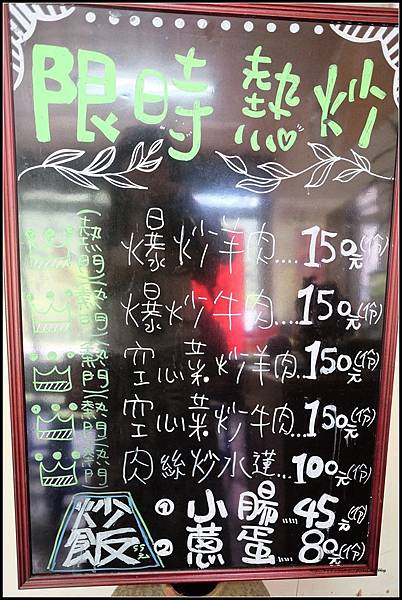 限時熱炒
(熱門) 爆炒羊肉....150元(份)
(熱門) 爆炒牛肉....150元(份)
(熱門) 空心菜炒羊肉..150元(份)
(熱門) 空心菜炒牛肉...150元(份)
(熱門) 肉絲炒水蓮...100元(份)
炒飯 55元
① 小腸....45元(份)
② 蔥蛋....80元(份)